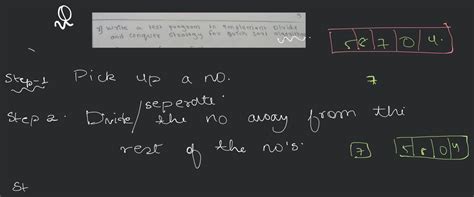 Q
9) Write a test program to implement Divide
and conquer strategy for quick sort algorithm
5 8 7 0 4.
Step-1 Pick up a no. 7
seperate
Step 2. Divide/ the no away from the
rest of the no's. 7 5 8 0 4
St